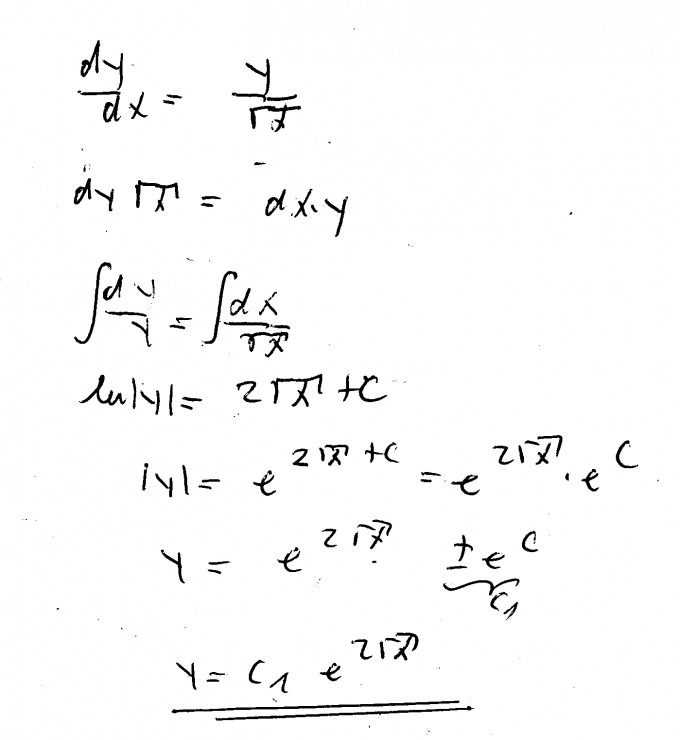 dy/dx = y/√x
dy √x = dx·y
∫ dy/y = ∫ dx/√x
ln|y| = 2√x + C
|y| = e^(2√x + C) = e^(2√x) · e^C
y = e^(2√x) · ±e^C
C₁
y = C₁ e^(2√x)